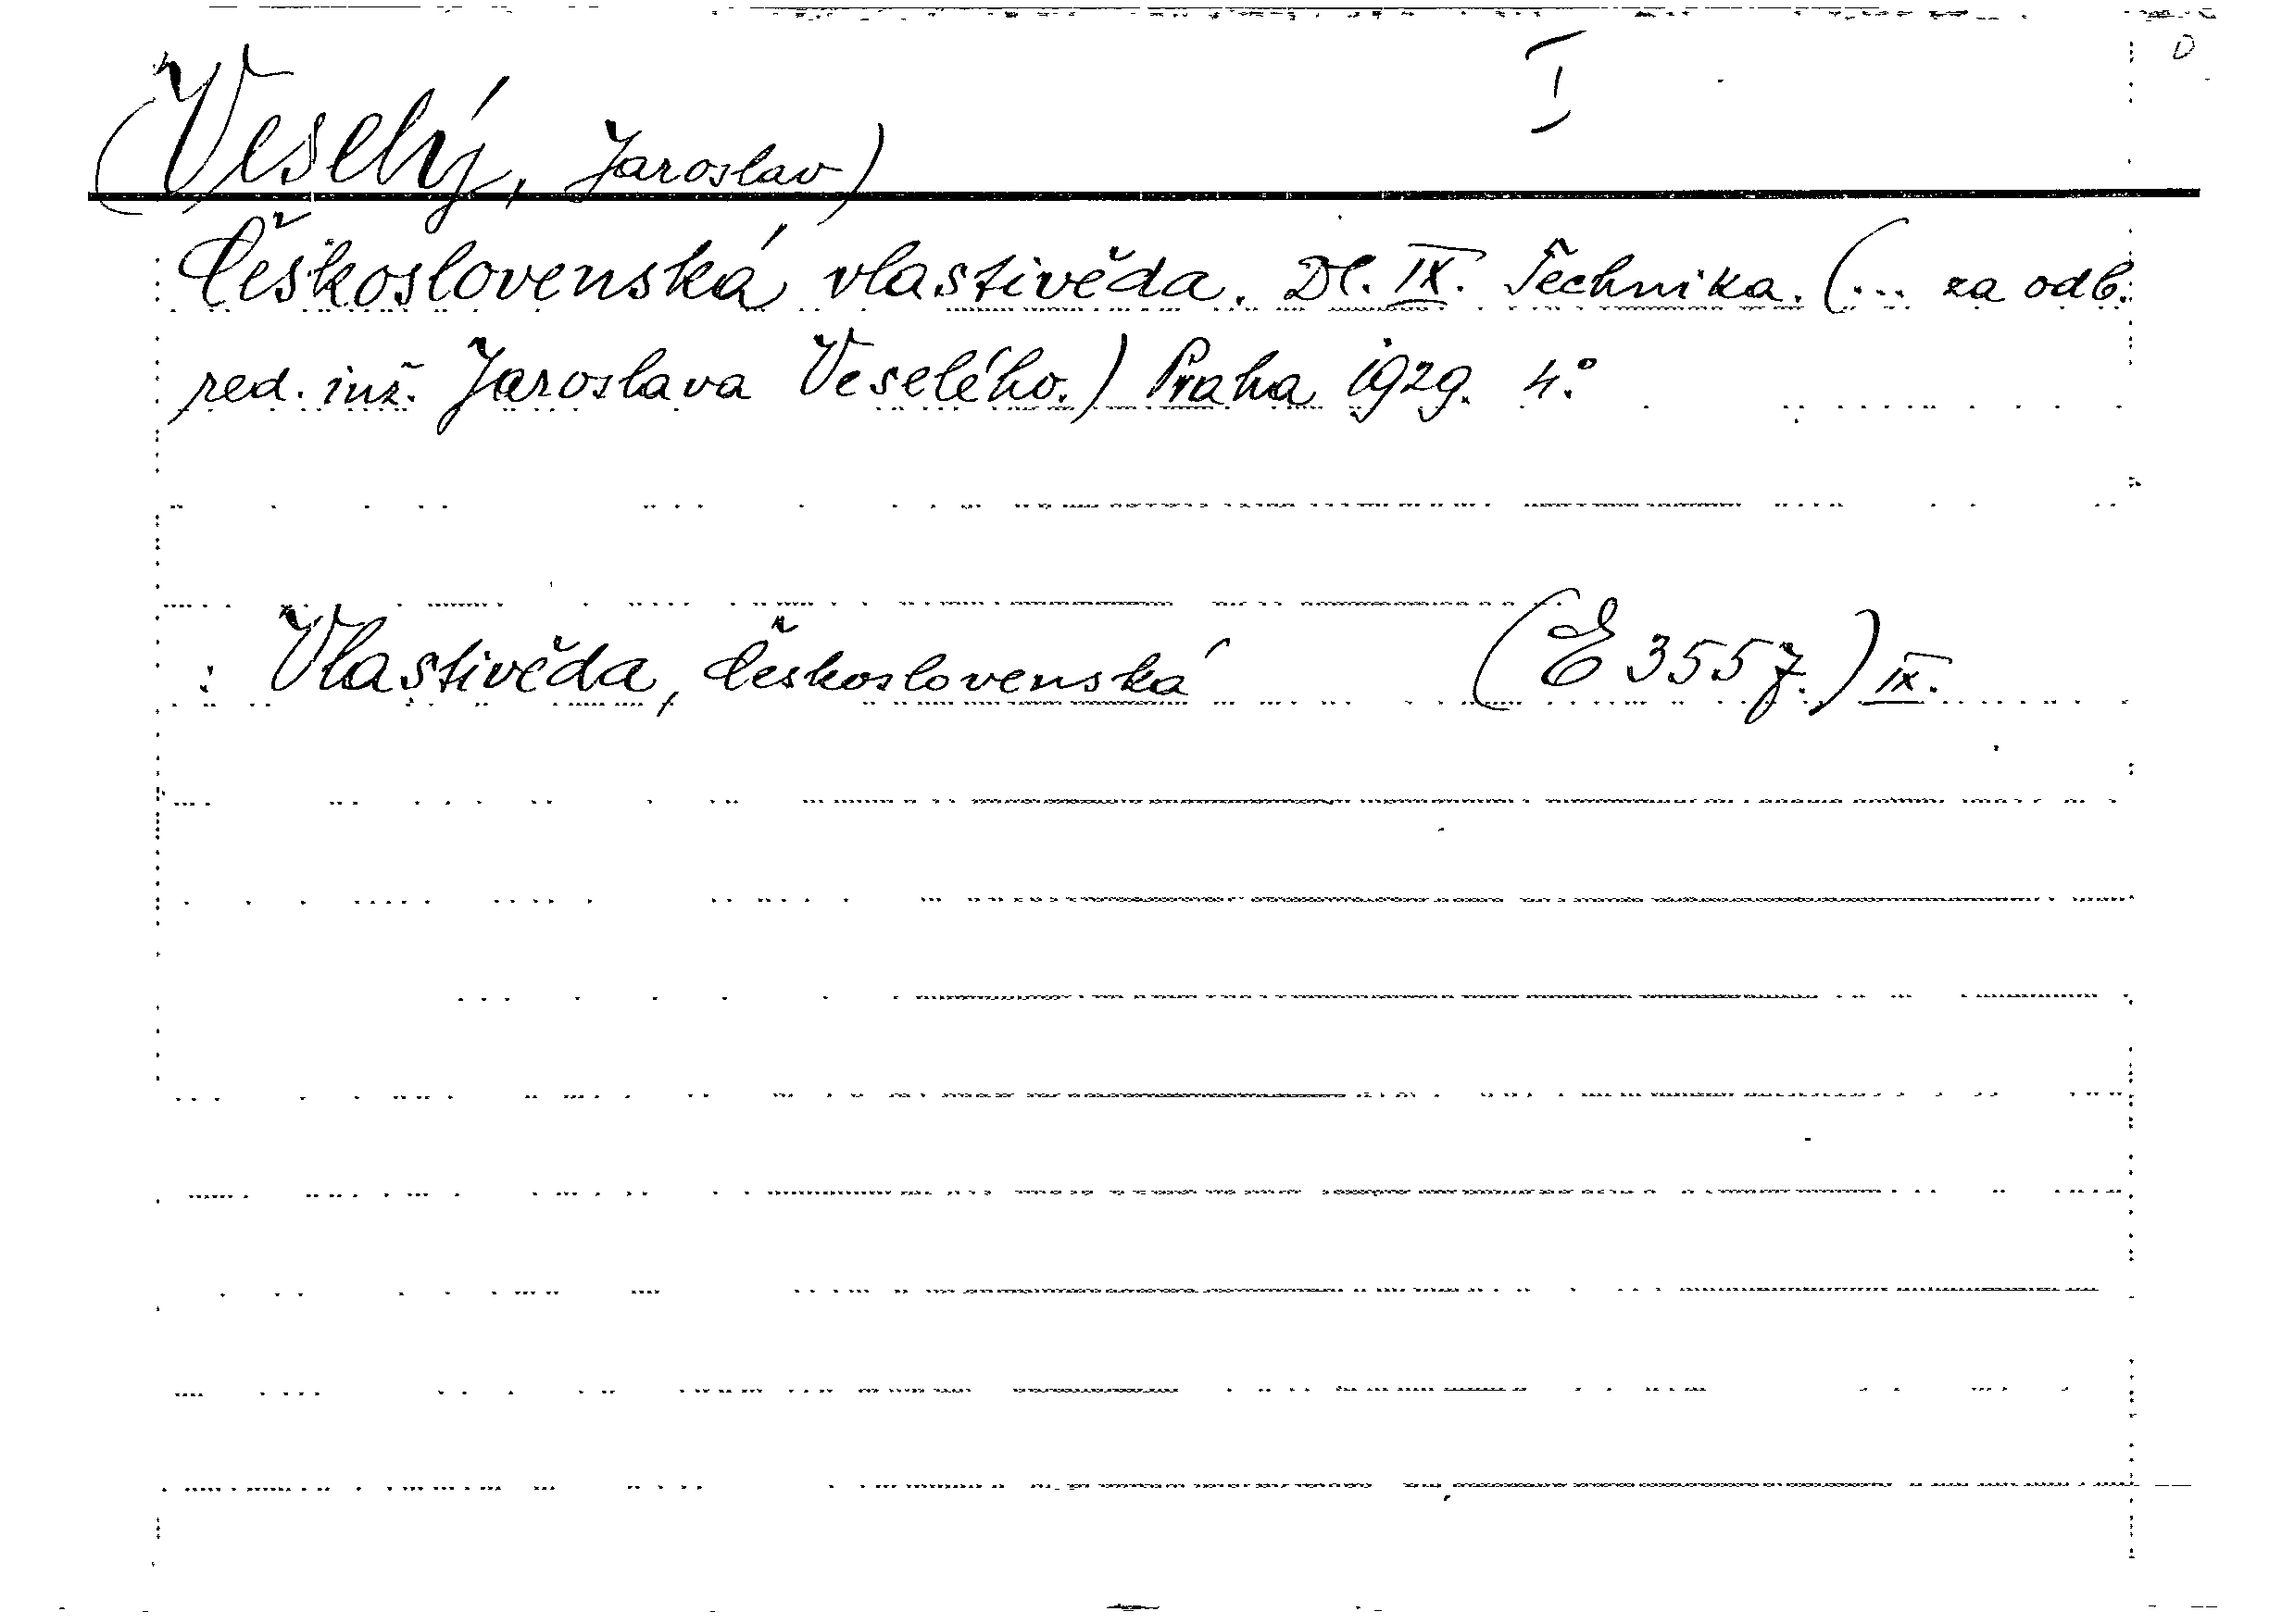 I
(Veselý, Jaroslav)
Československá vlastivěda. Dl. IX. Technika. (... za odb.
red. inž. Jaroslava Veselého.) Praha 1929. 4°.
: Vlastivěda, Československá (E 3557.) IX.